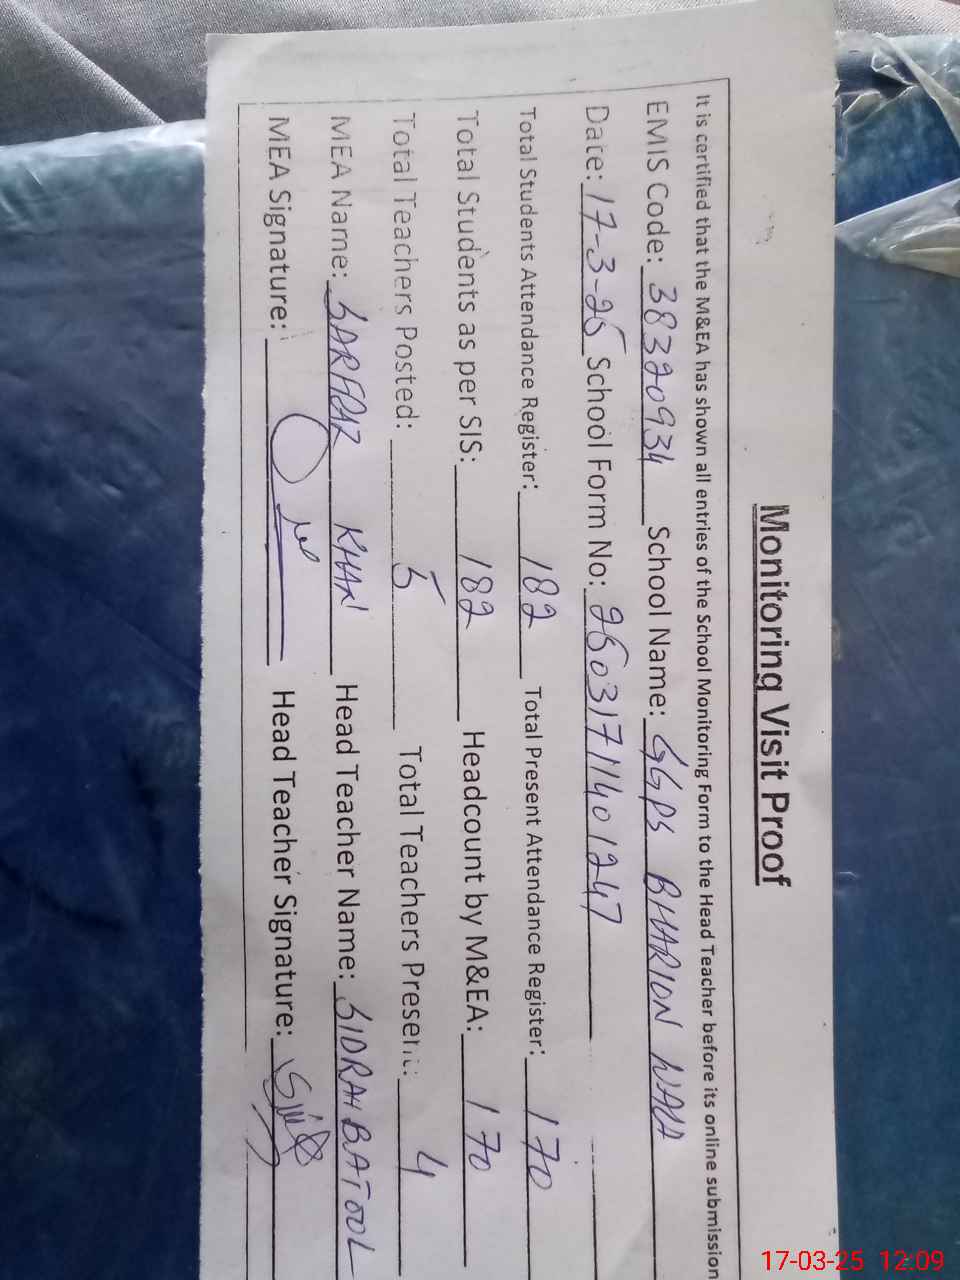 Monitoring Visit Proof
It is certified that the M&EA has shown all entries of the School Monitoring Form to the Head Teacher before its online submission
EMIS Code: 38320934 School Name: GGPS BHARION WALA
Date: 17-3-25 School Form No: 25031711401247
Total Students Attendance Register: 182 Total Present Attendance Register: 170
Total Students as per SIS: 182 Headcount by M&EA: 170
Total Teachers Posted: 5 Total Teachers Present: 4
MEA Name: SARFRAZ KHAN Head Teacher Name: SIDRAH BATOOL
MEA Signature: Head Teacher Signature:
17-03-25 12:09